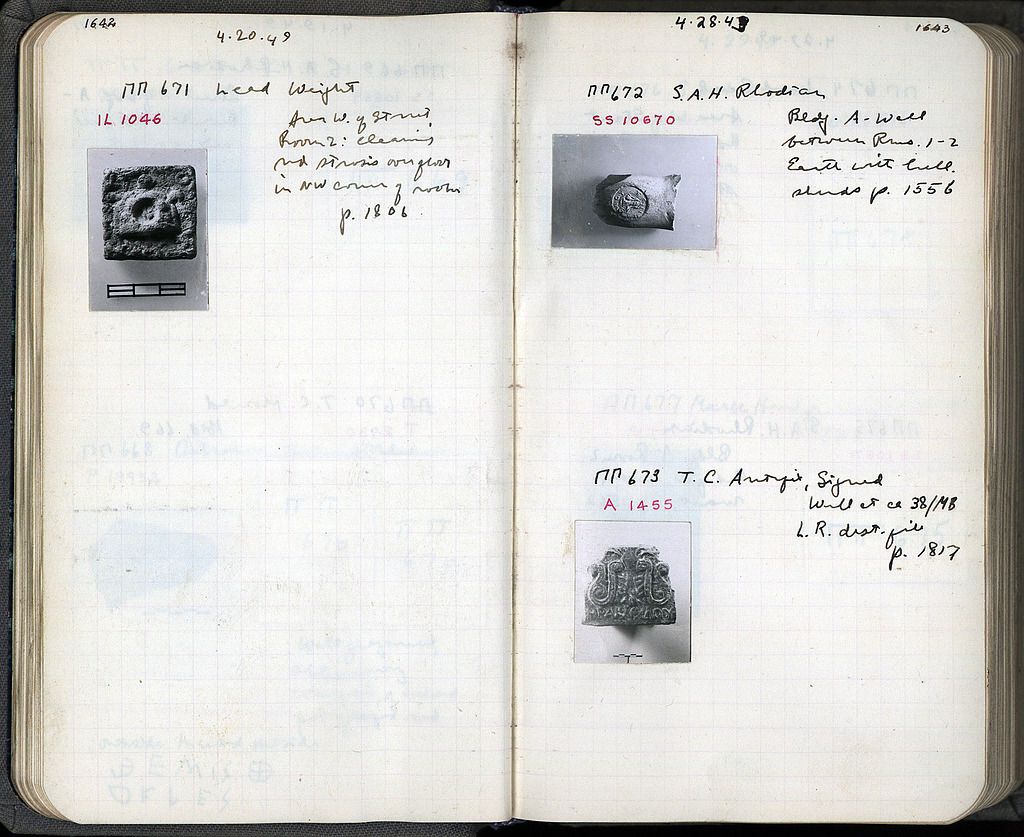 1642
4.20.49
ΠΠ 671 Lead Weight
IL 1046
Area W. of Street,
Room 2: cleaning
red strosis over floor
in NW corner of room
p. 1806.
1643
4.28.49
ΠΠ 672 S.A.H. Rhodian
SS 10670
Bldg. A-Well
between Rms. 1-2
Earth with hell.
sherds p. 1556
ΠΠ 673 T.C. Antefix, Signed
A 1455
Wall at ca 38/ΜΒ
L.R. dest. fill
p. 1817